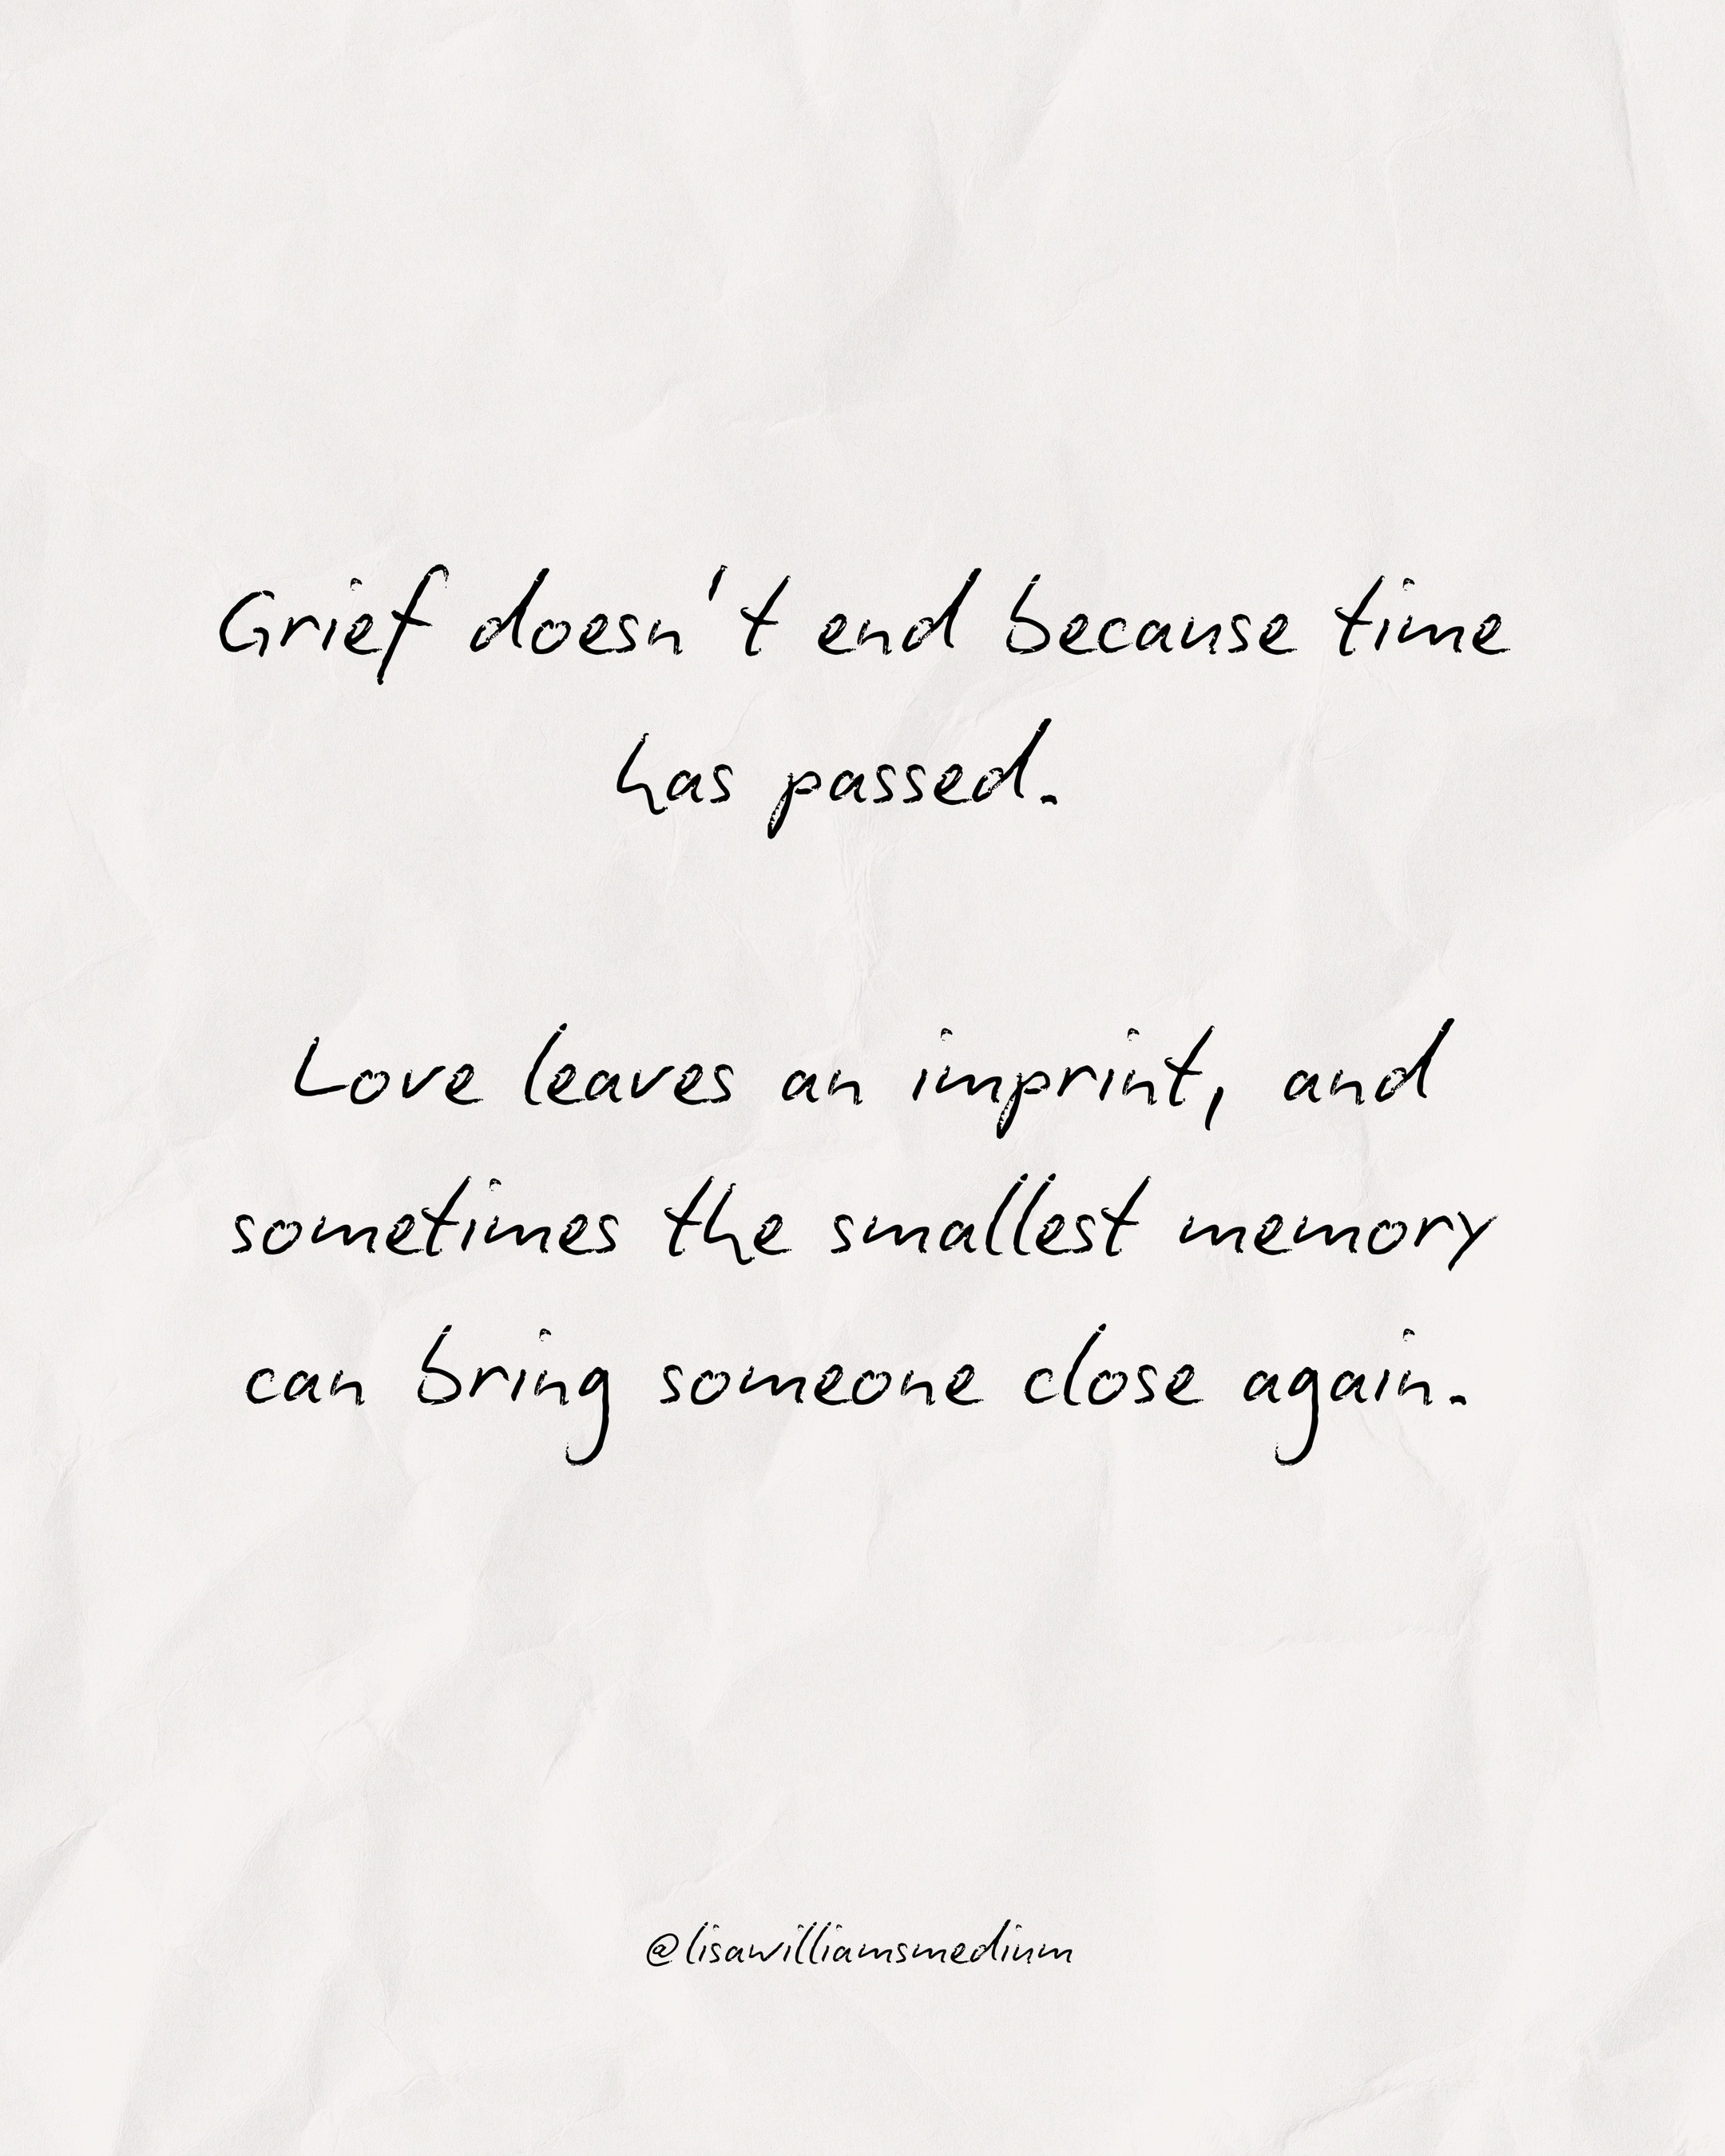 Grief doesn't end because time
has passed.
Love leaves an imprint, and
sometimes the smallest memory
can bring someone close again.
@lisawilliamsmedium